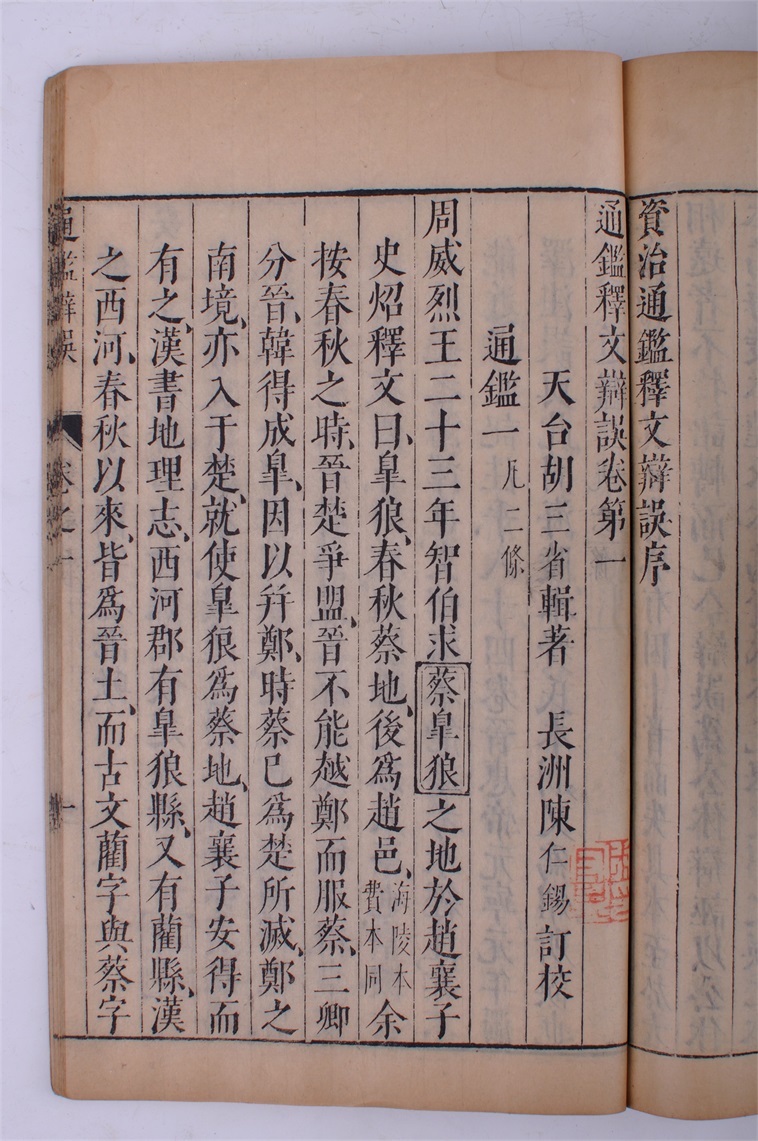 資治通鑑釋文辯誤序
通鑑釋文辯誤卷第一
天台胡三省輯著　長洲陳仁錫訂校
通鑑一 凡二條
周威烈王二十三年智伯求蔡臯狼之地於趙襄子
史炤釋文曰、臯狼、春秋蔡地、後爲趙邑、海陵本費本同余
按春秋之時、晉楚爭盟、晉不能越鄭而服蔡、三卿
分晉、韓得成臯、因以幷鄭、時蔡已爲楚所滅、鄭之
南境、亦入于楚、就使臯狼爲蔡地、趙襄子安得而
有之、漢書地理志、西河郡有臯狼縣、又有藺縣、漢
之西河、春秋以來、皆爲晉土、而古文藺字與蔡字
通鑑辯誤　卷之一　一